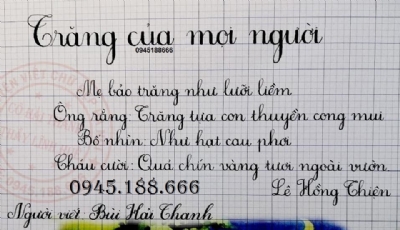 Trăng của mọi người
0945188666
Mẹ bảo trăng như lưỡi liềm
Ông rằng: Trăng tựa con thuyền cong mui
Bố nhìn: Như hạt cau phơi
Cháu cười: Quả chín vàng tươi ngoài vườn.
0945.188.666 Lê Hồng Thiện
Người viết Bùi Hải Thanh